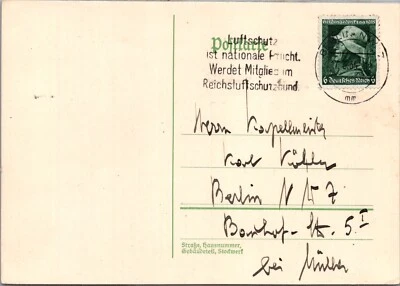 Postkarte
Luftschutz
ist nationale Pflicht.
Werdet Mitglied im
Reichsluftschutzbund.
6 Deutsches Reich 6
Herrn Kapellmeister
Karl
Berlin N W 7
5 I
bei Müller
Straße, Hausnummer,
Gebäudeteil, Stockwerk